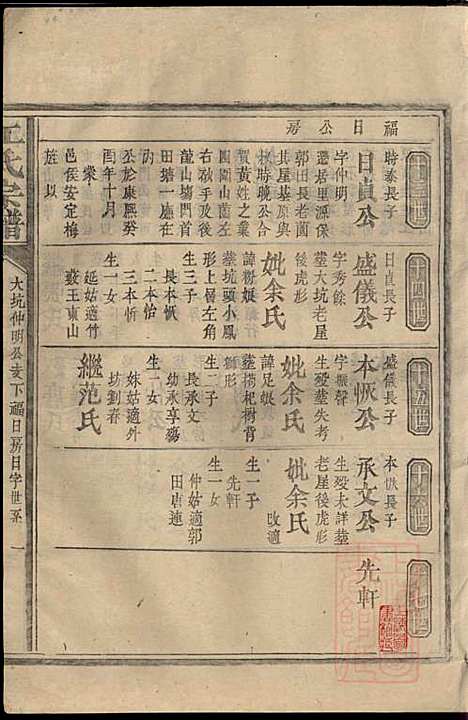 福日公房
十三世
時泰長子
日貞公
字仲明
遷居里源保
郭田長老崗
其屋基原與
叔時晚公合
賀黃姓之業
團圍山薗左
右砂手及後
龍山場門首
田塘一廳在
內
公於康熙癸
酉年十月
蒙
邑侯安定梅
旌以
十四世
日貞長子
盛儀公
字秀餘
墓大坑老屋
後虎形
妣余氏
諱
墓坑頭小鳳
形上層左角
生三子
長本恢
二本怡
三本忻
生一女
延姑適竹
藪王東山
十五世
盛儀長子
本恢公
字振聲
生歿墓失考
妣余氏
諱足娥
墓樹背
獅形
生二子
長承文
幼承享殤
生一女
妹姑適外
坊劉春
繼范氏
十六世
本恢長子
承文公
生歿未詳墓
老屋後虎形
妣余氏
改適
生一子
先軒
生一女
仲姑適郭
田唐連
十七世
先軒
氏宗譜
大坑仲明公支下福日房日字世系
一